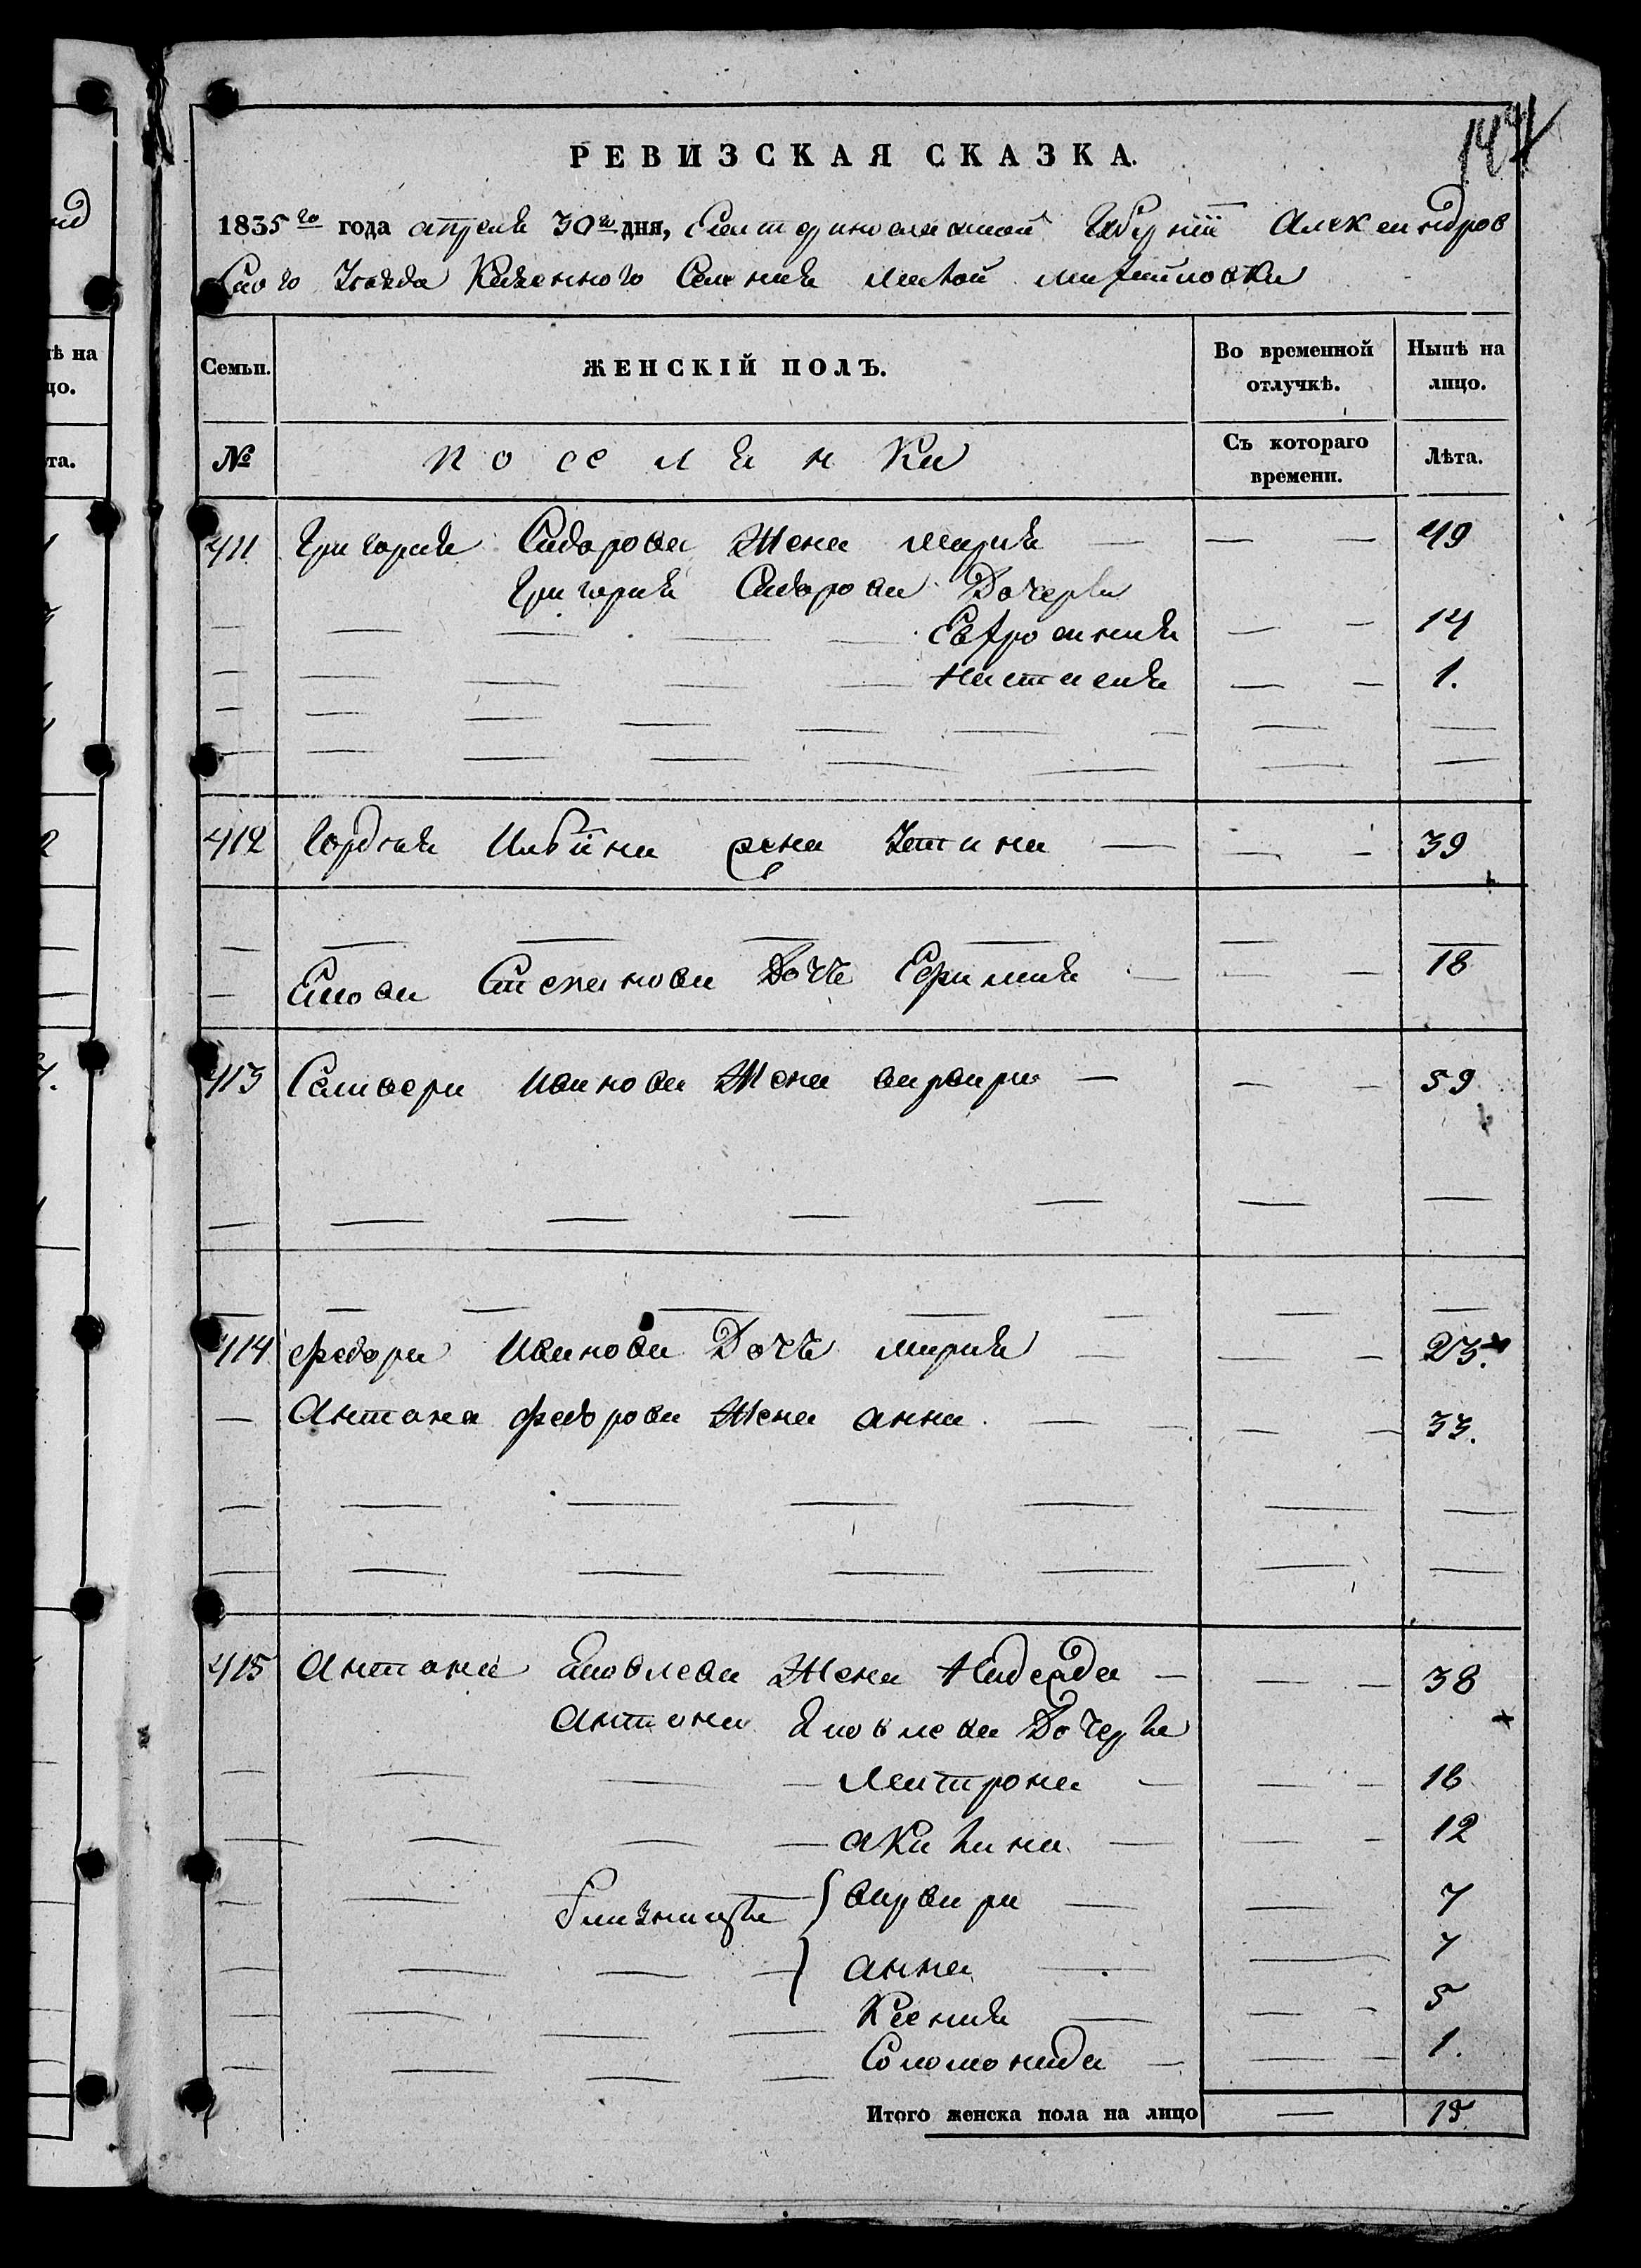 144
РЕВИЗСКАЯ СКАЗКА.
1835го года апреля 30го дня, Екатеринославской Губерніи Александров
скаго Уезда Казенного Селения малой михайловки
Семьи. ЖЕНСКІЙ ПОЛЪ. Во временной отлучкѣ. Нынѣ на лицо.
№ поселянки Съ котораго времени. Лѣта.
411 Григория Сидорова Жена мария — — — 49
Григория Сидорова Дочери
Евфросиния — — 14
Настасия — — 1.
412 Гордея жена Устина — — — 39
Якова Степанова Дочь Ефимия — — — 18
413 Селивера Иванова Жена варвара — — — 59
414 Федора Иванова Дочь мария — — — 23.
— Антона Федорова Жена анна — — — 33.
415 Антона Яковлева Жена Надежда — — — 38
Антона Яковлева Дочери
Матрона — — — 16
акилина — — — 12
близнецы варвара — — 7
анна — — 7
Ксения — — — 5
Соломонида — — — 1.
Итого женска пола на лицо — 15
ѣ на
цо.
та.